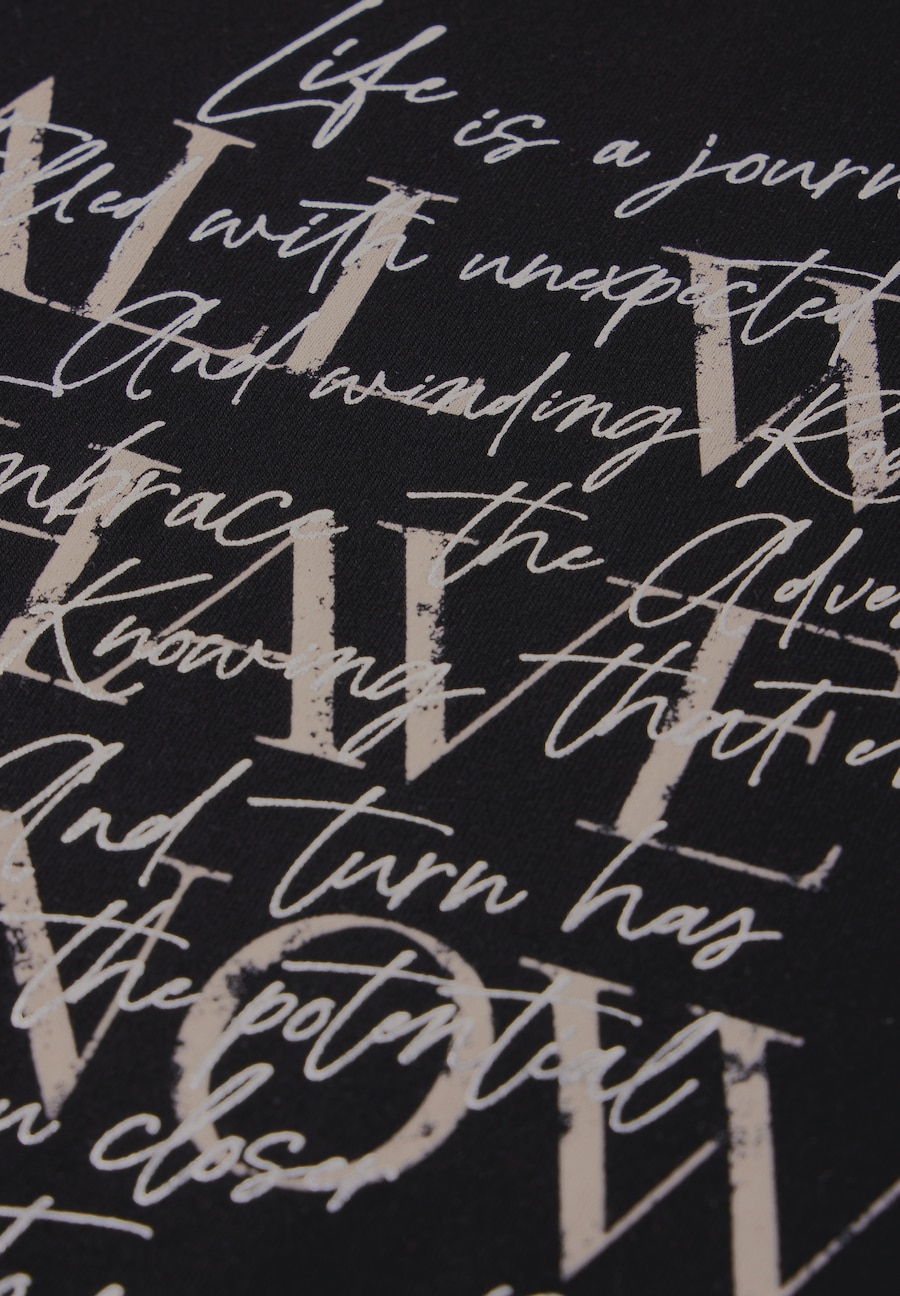 Life is a journ
lled with unexpected
And winding Roa
mbrace the Adven
Knowing that e
And turn has
the potential
closer
ALL W
AVE
NOW